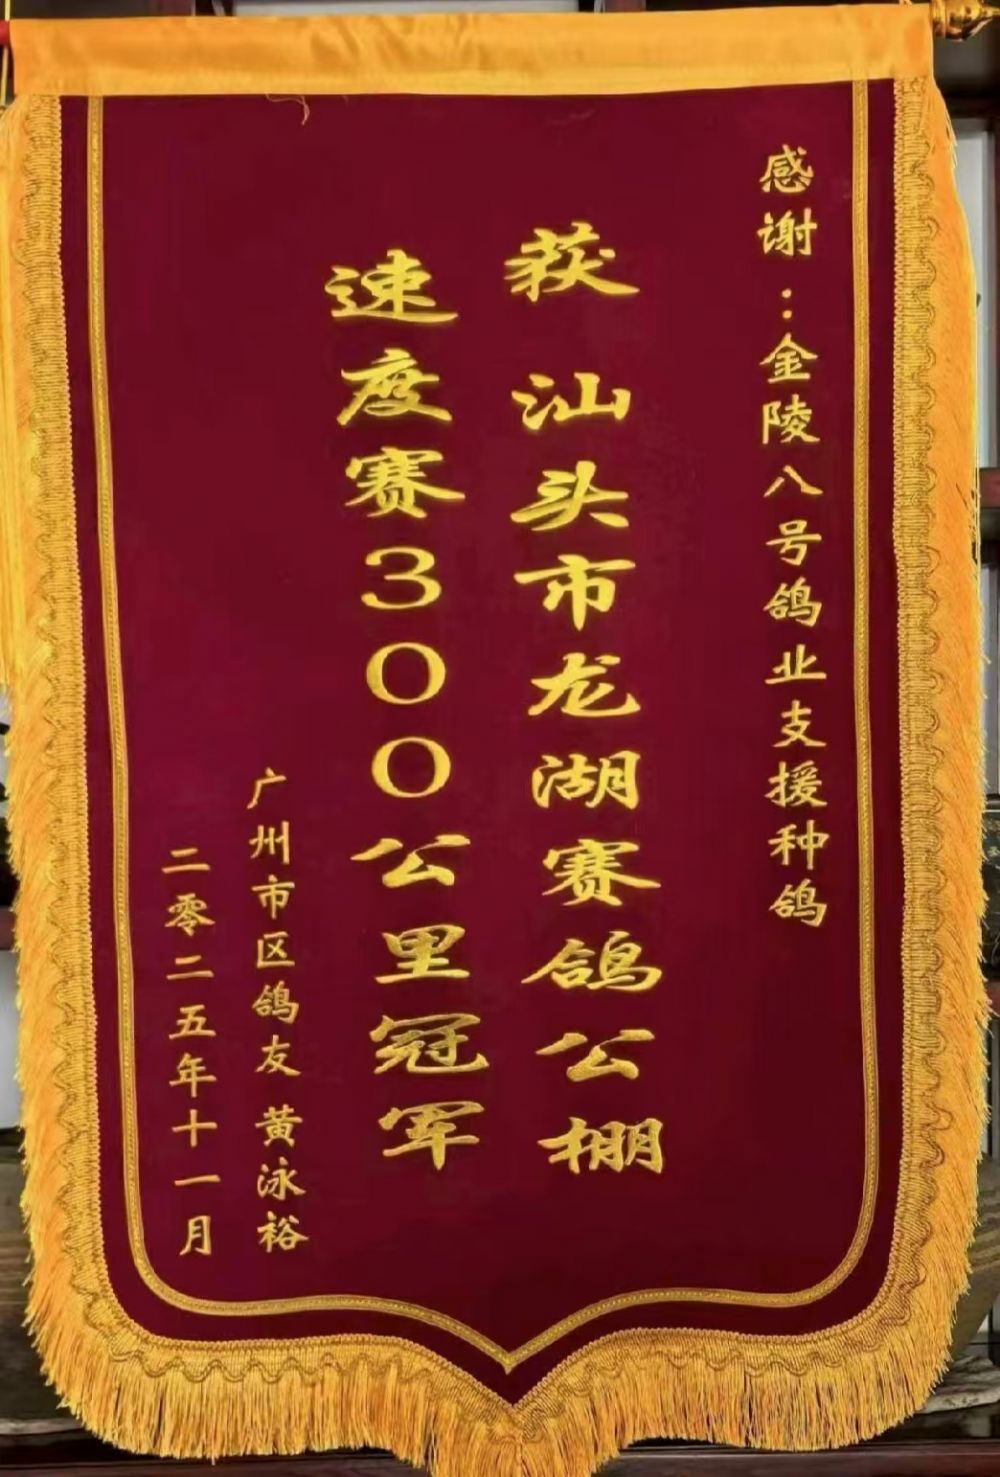 感谢：金陵八号鸽业支援种鸽
获汕头市龙湖赛鸽公棚
速度赛300公里冠军
广州市区鸽友 黄泳裕
二零二五年十一月